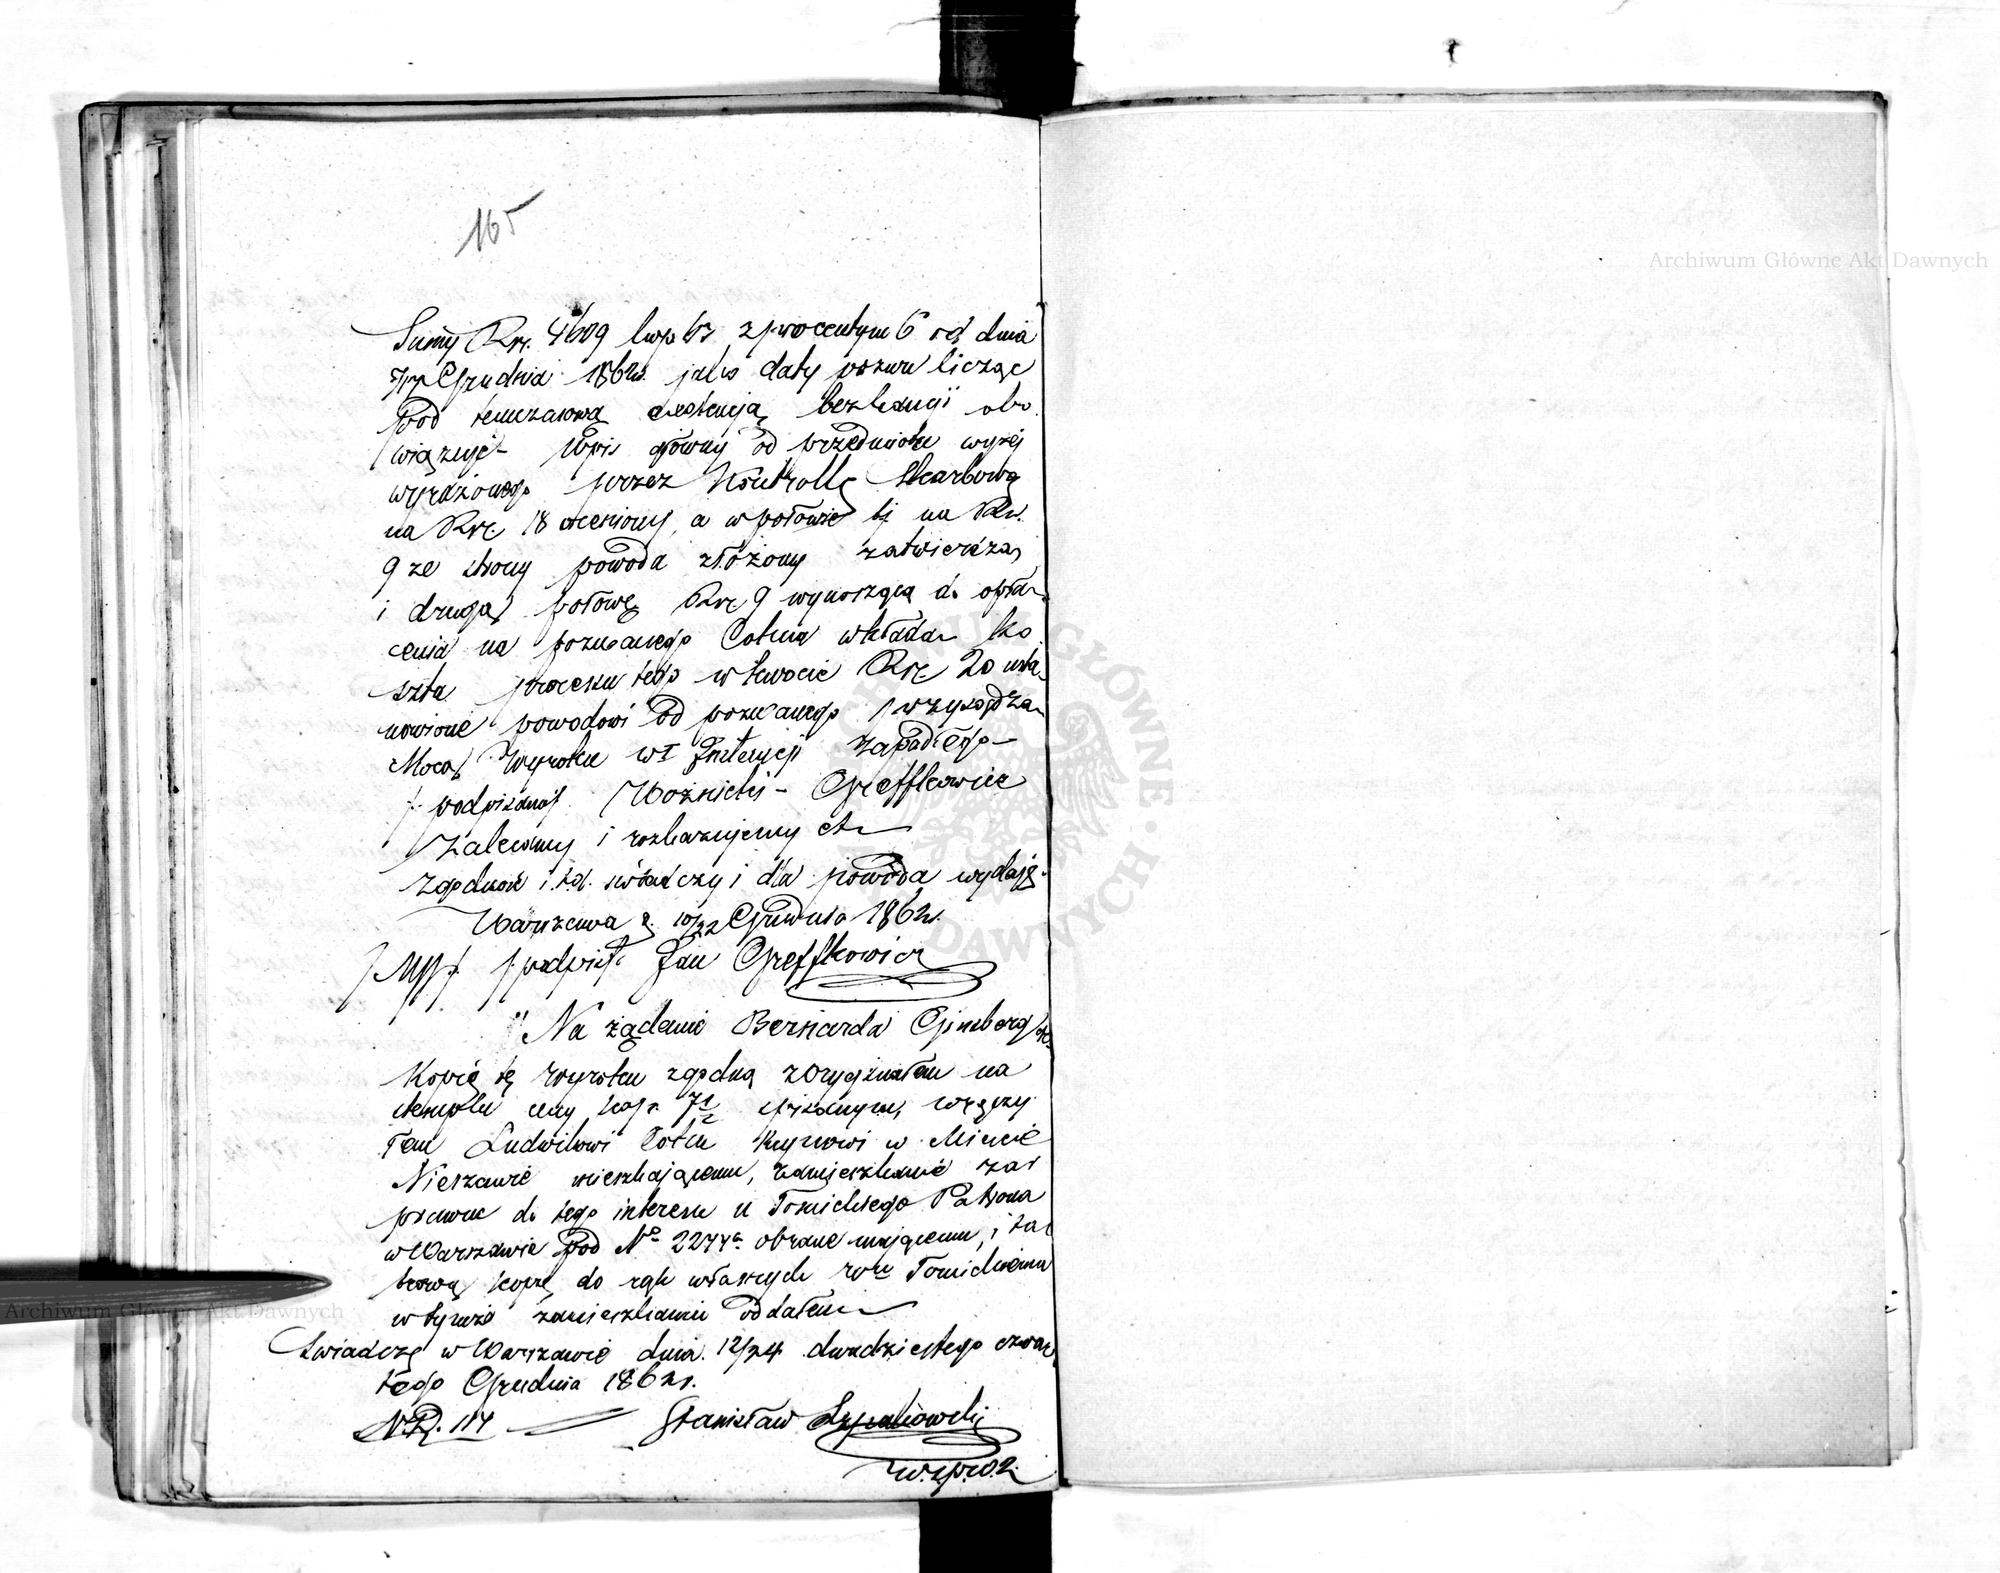 165
Sumy Rsr. 4609 kop 63 z procentem 6 od dnia
5/17 Grudnia 1862r. jako daty pozwu licząc
pod temczasową exekucją bez kaucji obo
wiązuje – Wpis główny od przedmiotu wyżej
wyrażonego przez Kontrollę Skarbową
na Rsr. 18 oceniony, a w połowie tj na Rsr.
9 ze strony powoda złożony zatwierdza,
i drugą połowę Rsr 9 wynoszącą do opła-
cenia na pozwanego Cohna wkłada – ko
szta processu tego w kwocie Rsr 20 usta-
nowione powodowi od pozwanego przysądza –
Mocą Wyroku w I Instancji zapadłego –
/: podpisano :/ Woźnicki – Greffkowicz
Zalecamy i rozkazujemy etc
Zgodność i t.d. świadczy i dla powoda wydaje.
Warszawa d. 10/22 Grudnia 1862r.
/: MP :/ /: podpis :/ Jan Greffkowicz
"Na żądanie Bernarda Ginsberg
Kopię tę wyroku zgodną z oryginałem na
stemplu ceny kop. 7½ spisanym, wręczy
łem Ludwikowi Cohn Kupcowi w Mieście
Nieszawie mieszkającemu, zamieszkanie zaś
prawne do tego interesu u Tomickiego Patrona
w Warszawie pod No 2244a obrane mającemu, i ta
kową kopię do rąk własnych Tomickiemu
w tymże zamieszkaniu oddałem
Świadczę w Warszawie dnia 12/24 dwudziestego czwar
tego Grudnia 1862r.
N.R. 114 Stanisław
Archiwum Główne Akt Dawnych
Archiwum Główne Akt Dawnych
ARCHIWUM GŁÓWNE AKT DAWNYCH